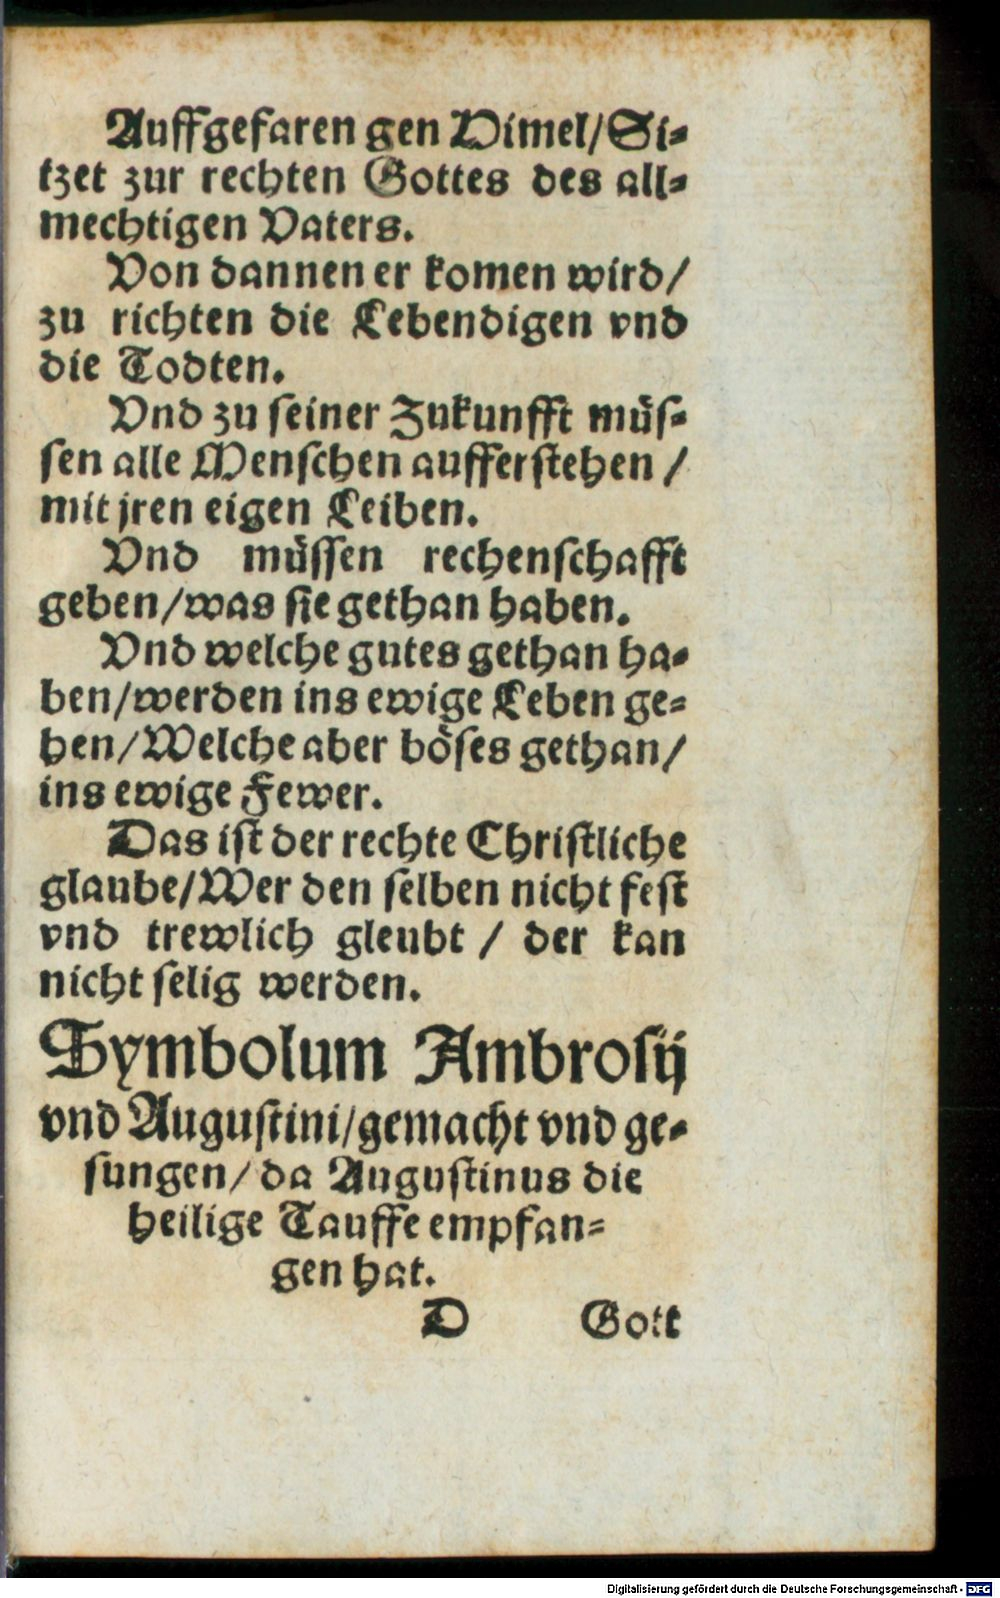 Auffgefaren gen Himel/Si-
tzet zur rechten Gottes des all-
mechtigen Vaters.
Von dannen er komen wird/
zu richten die Lebendigen vnd
die Todten.
Vnd zu seiner Zukunfft müs-
sen alle Menschen aufferstehen /
mit jren eigen Leiben.
Vnd müssen rechenschafft
geben/was sie gethan haben.
Vnd welche gutes gethan ha-
ben/werden ins ewige Leben ge-
hen/Welche aber böses gethan/
ins ewige Fewer.
Das ist der rechte Christliche
glaube/Wer den selben nicht fest
vnd trewlich gleubt / der kan
nicht selig werden.
Symbolum Ambrosij
vnd Augustini/gemacht vnd ge-
sungen/da Augustinus die
heilige Tauffe empfan-
gen hat.
D Gott
Digitalisierung gefördert durch die Deutsche Forschungsgemeinschaft - DFG